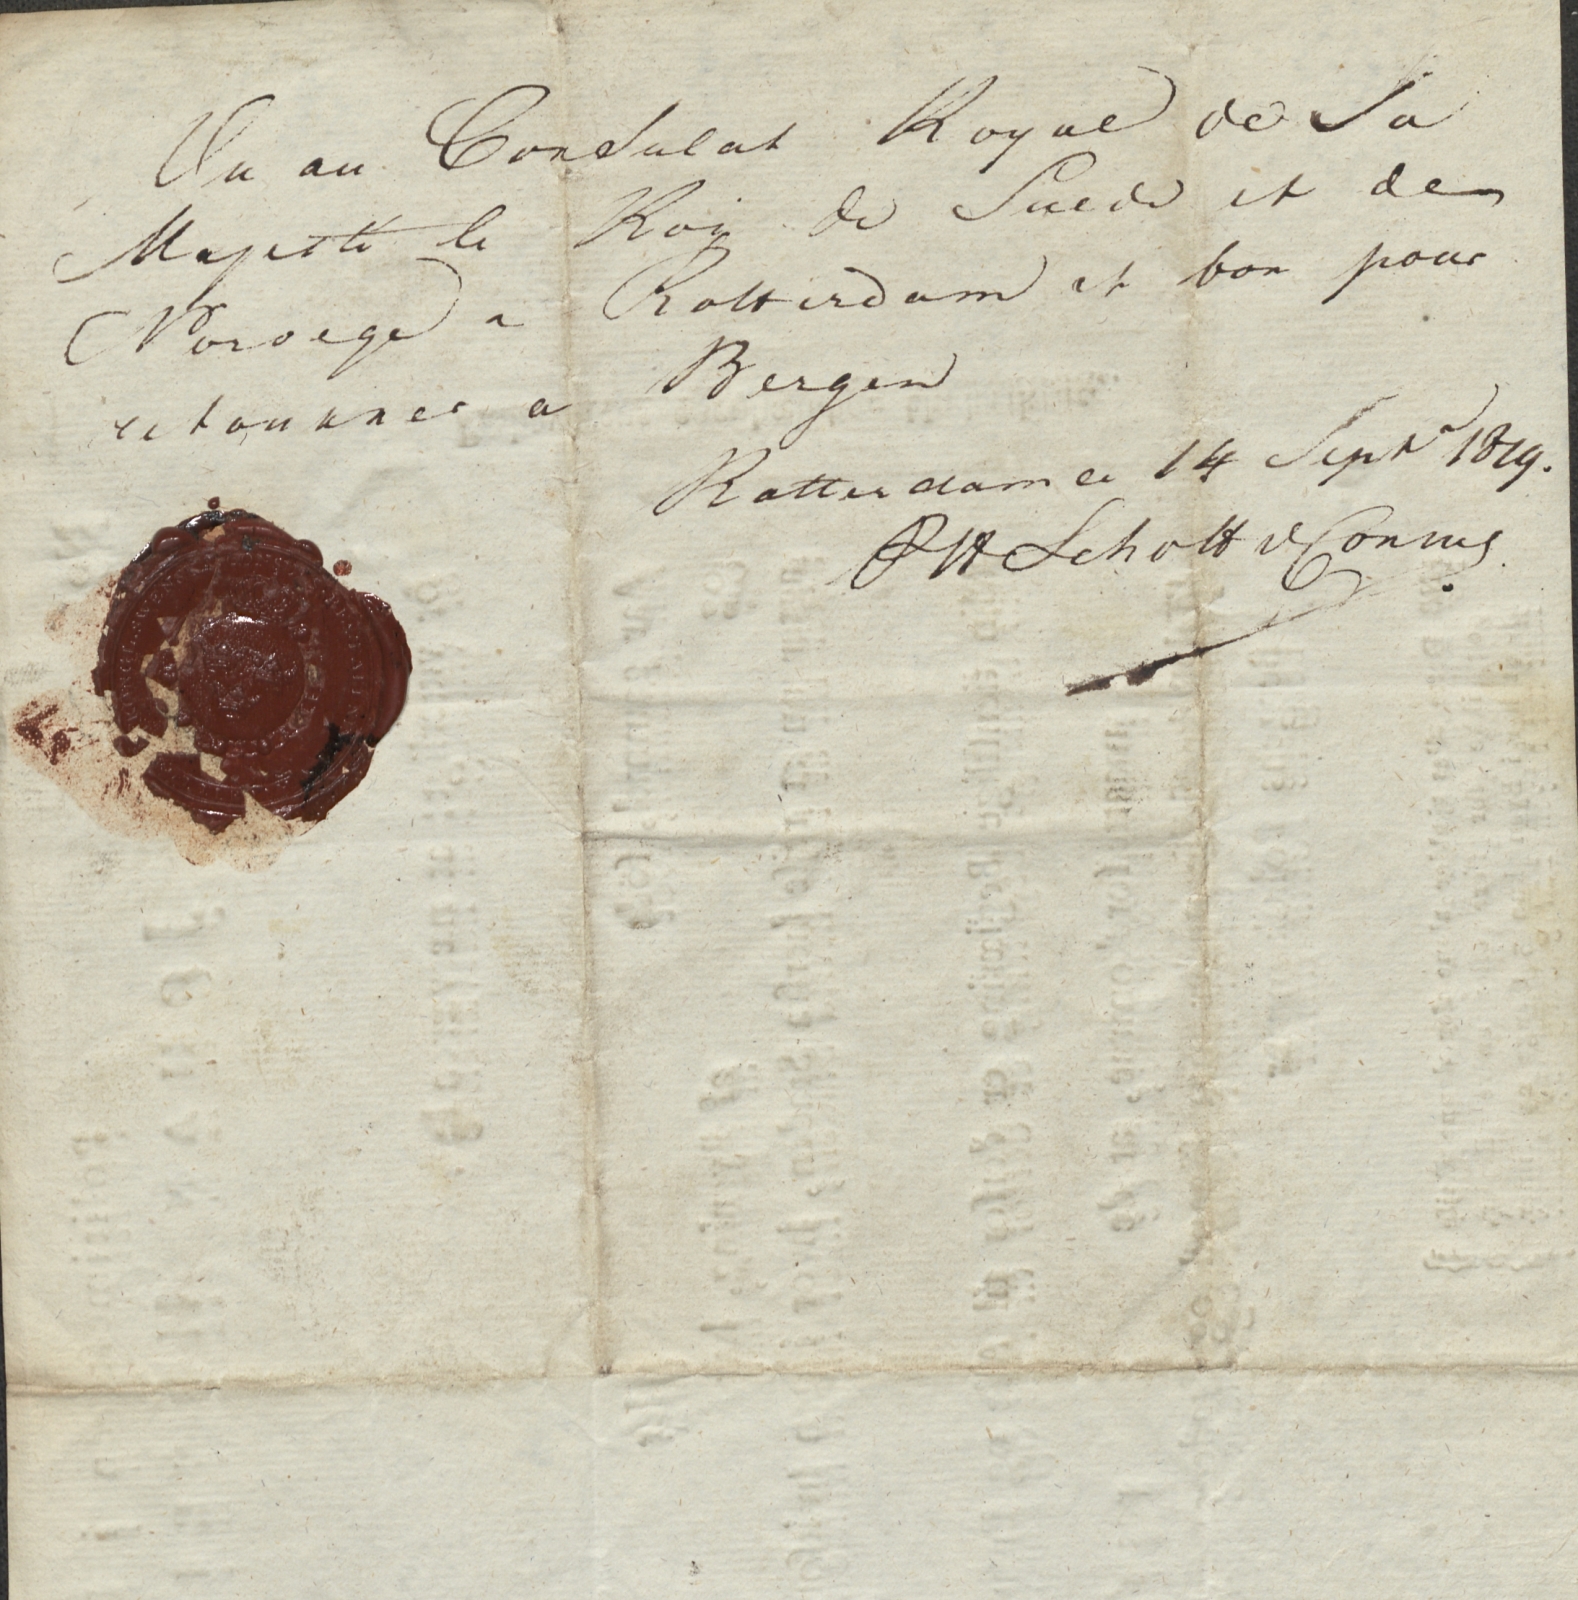 Vu au Consulat Royal de Sa
Majesté le Roi de Suede et de
Norvege a Rotterdam et bon pour
retourner a Bergen
Rotterdam ce 14 Septr 1819.
Scholt